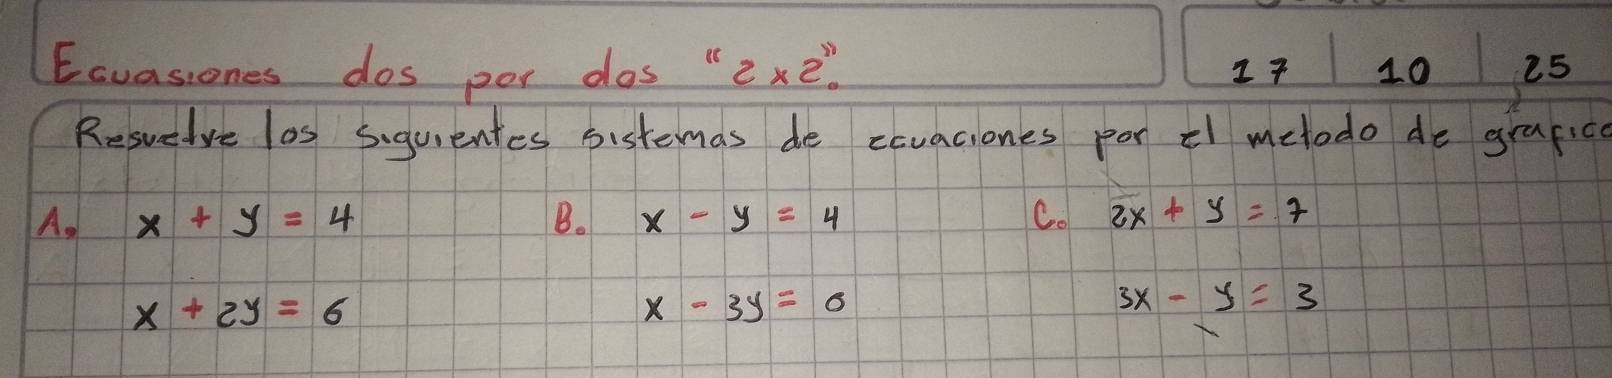 Ecuasiones dos por dos "2x2".
17 | 10 | 25
Resuelve los siguientes sistemas de ecuaciones por el metodo de grafico
A. x + y = 4
B. x - y = 4
C. 2x + y = 7
x + 2y = 6
x - 3y = 0
3x - y = 3